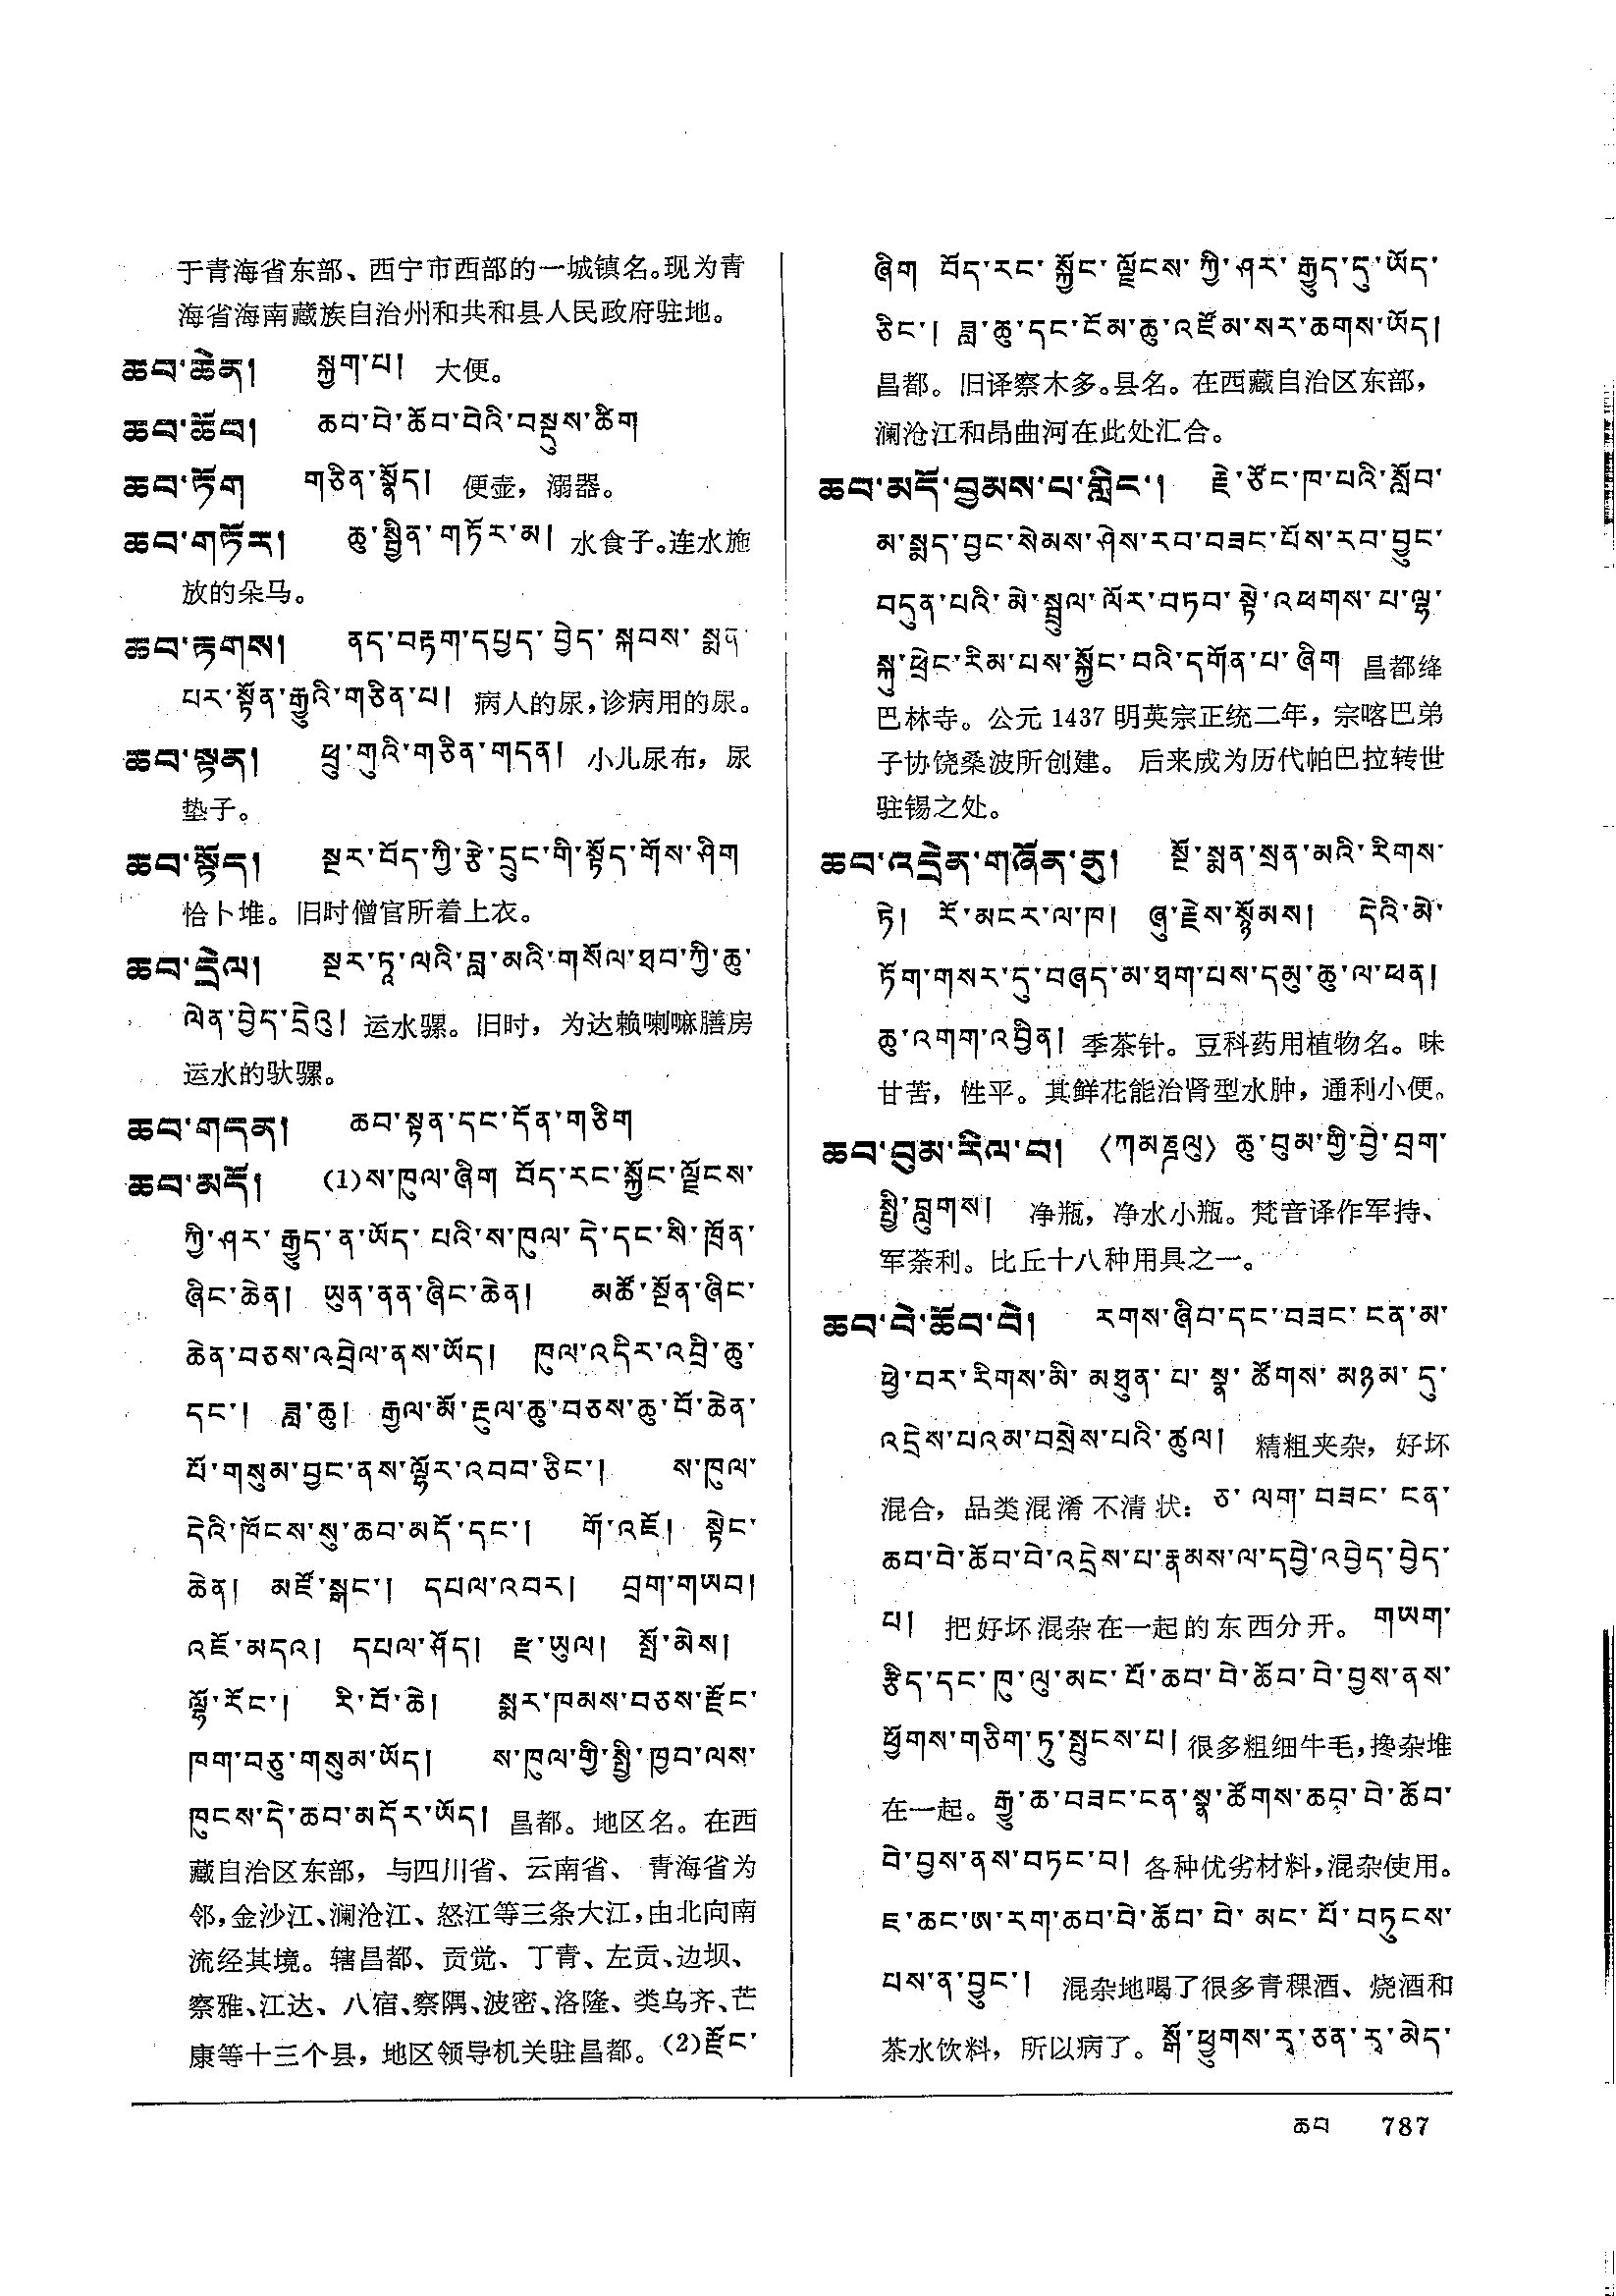 于青海省东部、西宁市西部的一城镇名。现为青
海省海南藏族自治州和共和县人民政府驻地。
ཆབ་ཆེན། སྐྱག་པ། 大便。
ཆབ་ཆོབ། ཆབ་བེ་ཆོབ་བེའི་བསྡུས་ཚིག
ཆབ་ཏོག གཅིན་སྣོད། 便壶，溺器。
ཆབ་གཏོར། ཆུ་སྦྱིན་གཏོར་མ། 水食子。连水施
放的朵马。
ཆབ་རྟགས། ནད་བརྟག་དཔྱད་བྱེད་སྐབས་སྨན་
པར་སྟོན་རྒྱུའི་གཅིན་པ། 病人的尿，诊病用的尿。
ཆབ་སྟན། ཕྲུ་གུའི་གཅིན་གདན། 小儿尿布，尿
垫子。
ཆབ་སྟོད། སྔར་བོད་ཀྱི་རྩེ་དྲུང་གི་སྟོད་གོས་ཤིག
恰卜堆。旧时僧官所着上衣。
ཆབ་དྲེལ། སྔར་ཏཱ་ལའི་བླ་མའི་གསོལ་ཐབ་ཀྱི་ཆུ་
ལེན་བྱེད་དྲེའུ། 运水骡。旧时，为达赖喇嘛膳房
运水的驮骡。
ཆབ་གདན། ཆབ་སྟན་དང་དོན་གཅིག
ཆབ་མདོ། (1)ས་ཁུལ་ཞིག བོད་རང་སྐྱོང་ལྗོངས་
ཀྱི་ཤར་རྒྱུད་ན་ཡོད་པའི་ས་ཁུལ་དེ་དང་སི་ཁྲོན་
ཞིང་ཆེན། ཡུན་ནན་ཞིང་ཆེན། མཚོ་སྔོན་ཞིང་
ཆེན་བཅས་འབྲེལ་ནས་ཡོད། ཁུལ་འདིར་འབྲི་ཆུ་
དང་། ཟླ་ཆུ། རྒྱལ་མོ་རྔུལ་ཆུ་བཅས་ཆུ་བོ་ཆེན་
པོ་གསུམ་བྱང་ནས་ལྷོར་འབབ་ཅིང་། ས་ཁུལ་
དེའི་ཁོངས་སུ་ཆབ་མདོ་དང་། གོ་འཇོ། སྟེང་
ཆེན། མཛོ་སྒང་། དཔལ་འབར། བྲག་གཡབ།
འཇོ་མདའ། དཔལ་ཤོད། རྫ་ཡུལ། སྤོ་མེས།
ལྷོ་རོང་། རི་བོ་ཆེ། སྨར་ཁམས་བཅས་རྫོང་
ཁག་བཅུ་གསུམ་ཡོད། ས་ཁུལ་གྱི་སྤྱི་ཁྱབ་ལས་
ཁུངས་དེ་ཆབ་མདོར་ཡོད། 昌都。地区名。在西
藏自治区东部，与四川省、云南省、青海省为
邻，金沙江、澜沧江、怒江等三条大江，由北向南
流经其境。辖昌都、贡觉、丁青、左贡、边坝、
察雅、江达、八宿、察隅、波密、洛隆、类乌齐、芒
康等十三个县，地区领导机关驻昌都。(2)རྫོང་
ཞིག བོད་རང་སྐྱོང་ལྗོངས་ཀྱི་ཤར་རྒྱུད་དུ་ཡོད་
ཅིང་། ཟླ་ཆུ་དང་ངོམ་ཆུ་འཛོམ་སར་ཆགས་ཡོད།
昌都。旧译察木多。县名。在西藏自治区东部，
澜沧江和昂曲河在此处汇合。
ཆབ་མདོ་བྱམས་པ་གླིང་། རྗེ་ཙོང་ཁ་པའི་སློབ་
མ་སྨད་བྱང་སེམས་ཤེས་རབ་བཟང་པོས་རབ་བྱུང་
བདུན་པའི་མེ་སྦྲུལ་ལོར་བཏབ་སྟེ་འཕགས་པ་ལྷ་
སྐུ་ཕྲེང་རིམ་པས་སྐྱོང་བའི་དགོན་པ་ཞིག 昌都绛
巴林寺。公元1437明英宗正统二年，宗喀巴弟
子协饶桑波所创建。后来成为历代帕巴拉转世
驻锡之处。
ཆབ་འདྲེན་གཞོན་ནུ། སྔོ་སྨན་སྲན་མའི་རིགས་
ཏེ། རོ་མངར་ལ་ཁ། ཞུ་རྗེས་སྙོམས། དེའི་མེ་
ཏོག་གསར་དུ་བཞད་མ་ཐག་པས་དམུ་ཆུ་ལ་ཕན།
ཆུ་འགག་འབྱིན། 季茶针。豆科药用植物名。味
甘苦，性平。其鲜花能治肾型水肿，通利小便。
ཆབ་བུམ་རིལ་བ། 〈ཀམཎྜལུ〉 ཆུ་བུམ་གྱི་བྱེ་བྲག་
སྤྱི་བླུགས། 净瓶，净水小瓶。梵音译作军持、
军荼利。比丘十八种用具之一。
ཆབ་བེ་ཆོབ་བེ། རགས་ཞིབ་དང་བཟང་ངན་མ་
ཕྱེ་བར་རིགས་མི་མཐུན་པ་སྣ་ཚོགས་མཉམ་དུ་
འདྲེས་པའམ་བསྲེས་པའི་ཚུལ། 精粗夹杂，好坏
混合，品类混淆不清状：ཅ་ལག་བཟང་ངན་
ཆབ་བེ་ཆོབ་བེ་འདྲེས་པ་རྣམས་ལ་དབྱེ་འབྱེད་བྱེད་
པ། 把好坏混杂在一起的东西分开。གཡག་
རྩིད་དང་ཁུ་ལུ་མང་པོ་ཆབ་བེ་ཆོབ་བེ་བྱས་ནས་
ཕྱོགས་གཅིག་ཏུ་སྤུངས་པ། 很多粗细牛毛，搀杂堆
在一起。རྒྱུ་ཆ་བཟང་ངན་སྣ་ཚོགས་ཆབ་བེ་ཆོབ་
བེ་བྱས་ནས་བཏང་བ། 各种优劣材料，混杂使用。
ཇ་ཆང་ཨ་རག་ཆབ་བེ་ཆོབ་བེ་མང་པོ་བཏུངས་
པས་ན་བྱུང་། 混杂地喝了很多青稞酒、烧酒和
茶水饮料，所以病了。སྒོ་ཕྱུགས་རྭ་ཅན་རྭ་མེད་
ཆབ 787